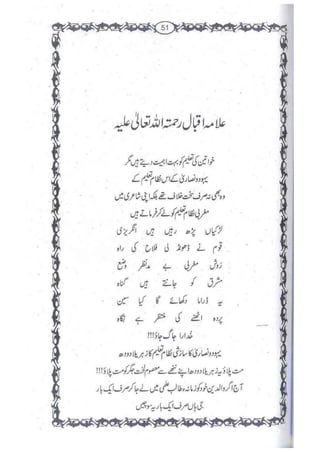 51
علامہ اقبال رحمتہ اللہ تعالیٰ علیہ
خواتین کی تعلیم کو بہت اہمیت دیتے ہیں مگر
یہود و نصاریٰ کے اس نظام تعلیم کے
وہ بھی نہ صرف سخت خلاف تھے بلکہ اپنی شاعری میں
مغربی نظام تعلیم کو لے کر فرماتے ہیں
لڑکیاں پڑھ رہیں ہیں انگریزی
قوم نے ڈھونڈ لی فلاح کی راہ
روش مغربی ہے مدنظر وضع
مشرق کو جانتے ہیں گناہ
یہ ڈراما دکھائے گا کیا سین
پردہ اٹھنے کی منتظر ہے نگاہ
خدارا جاگ جاؤ!!!
یہود و نصاریٰ کا سازشی نظام تعلیم کا زہریلا دودھ
مت پلاؤ یہ زہریلا دودھ اپنے ننھے سے معصوم لخت جگر کو مت پلاؤ!!!
آج اگر والدین خود کو زمانہ طالب علمی میں لے جا کر صرف ایک بار
جی ہاں صرف ایک بار یہ سوچیں